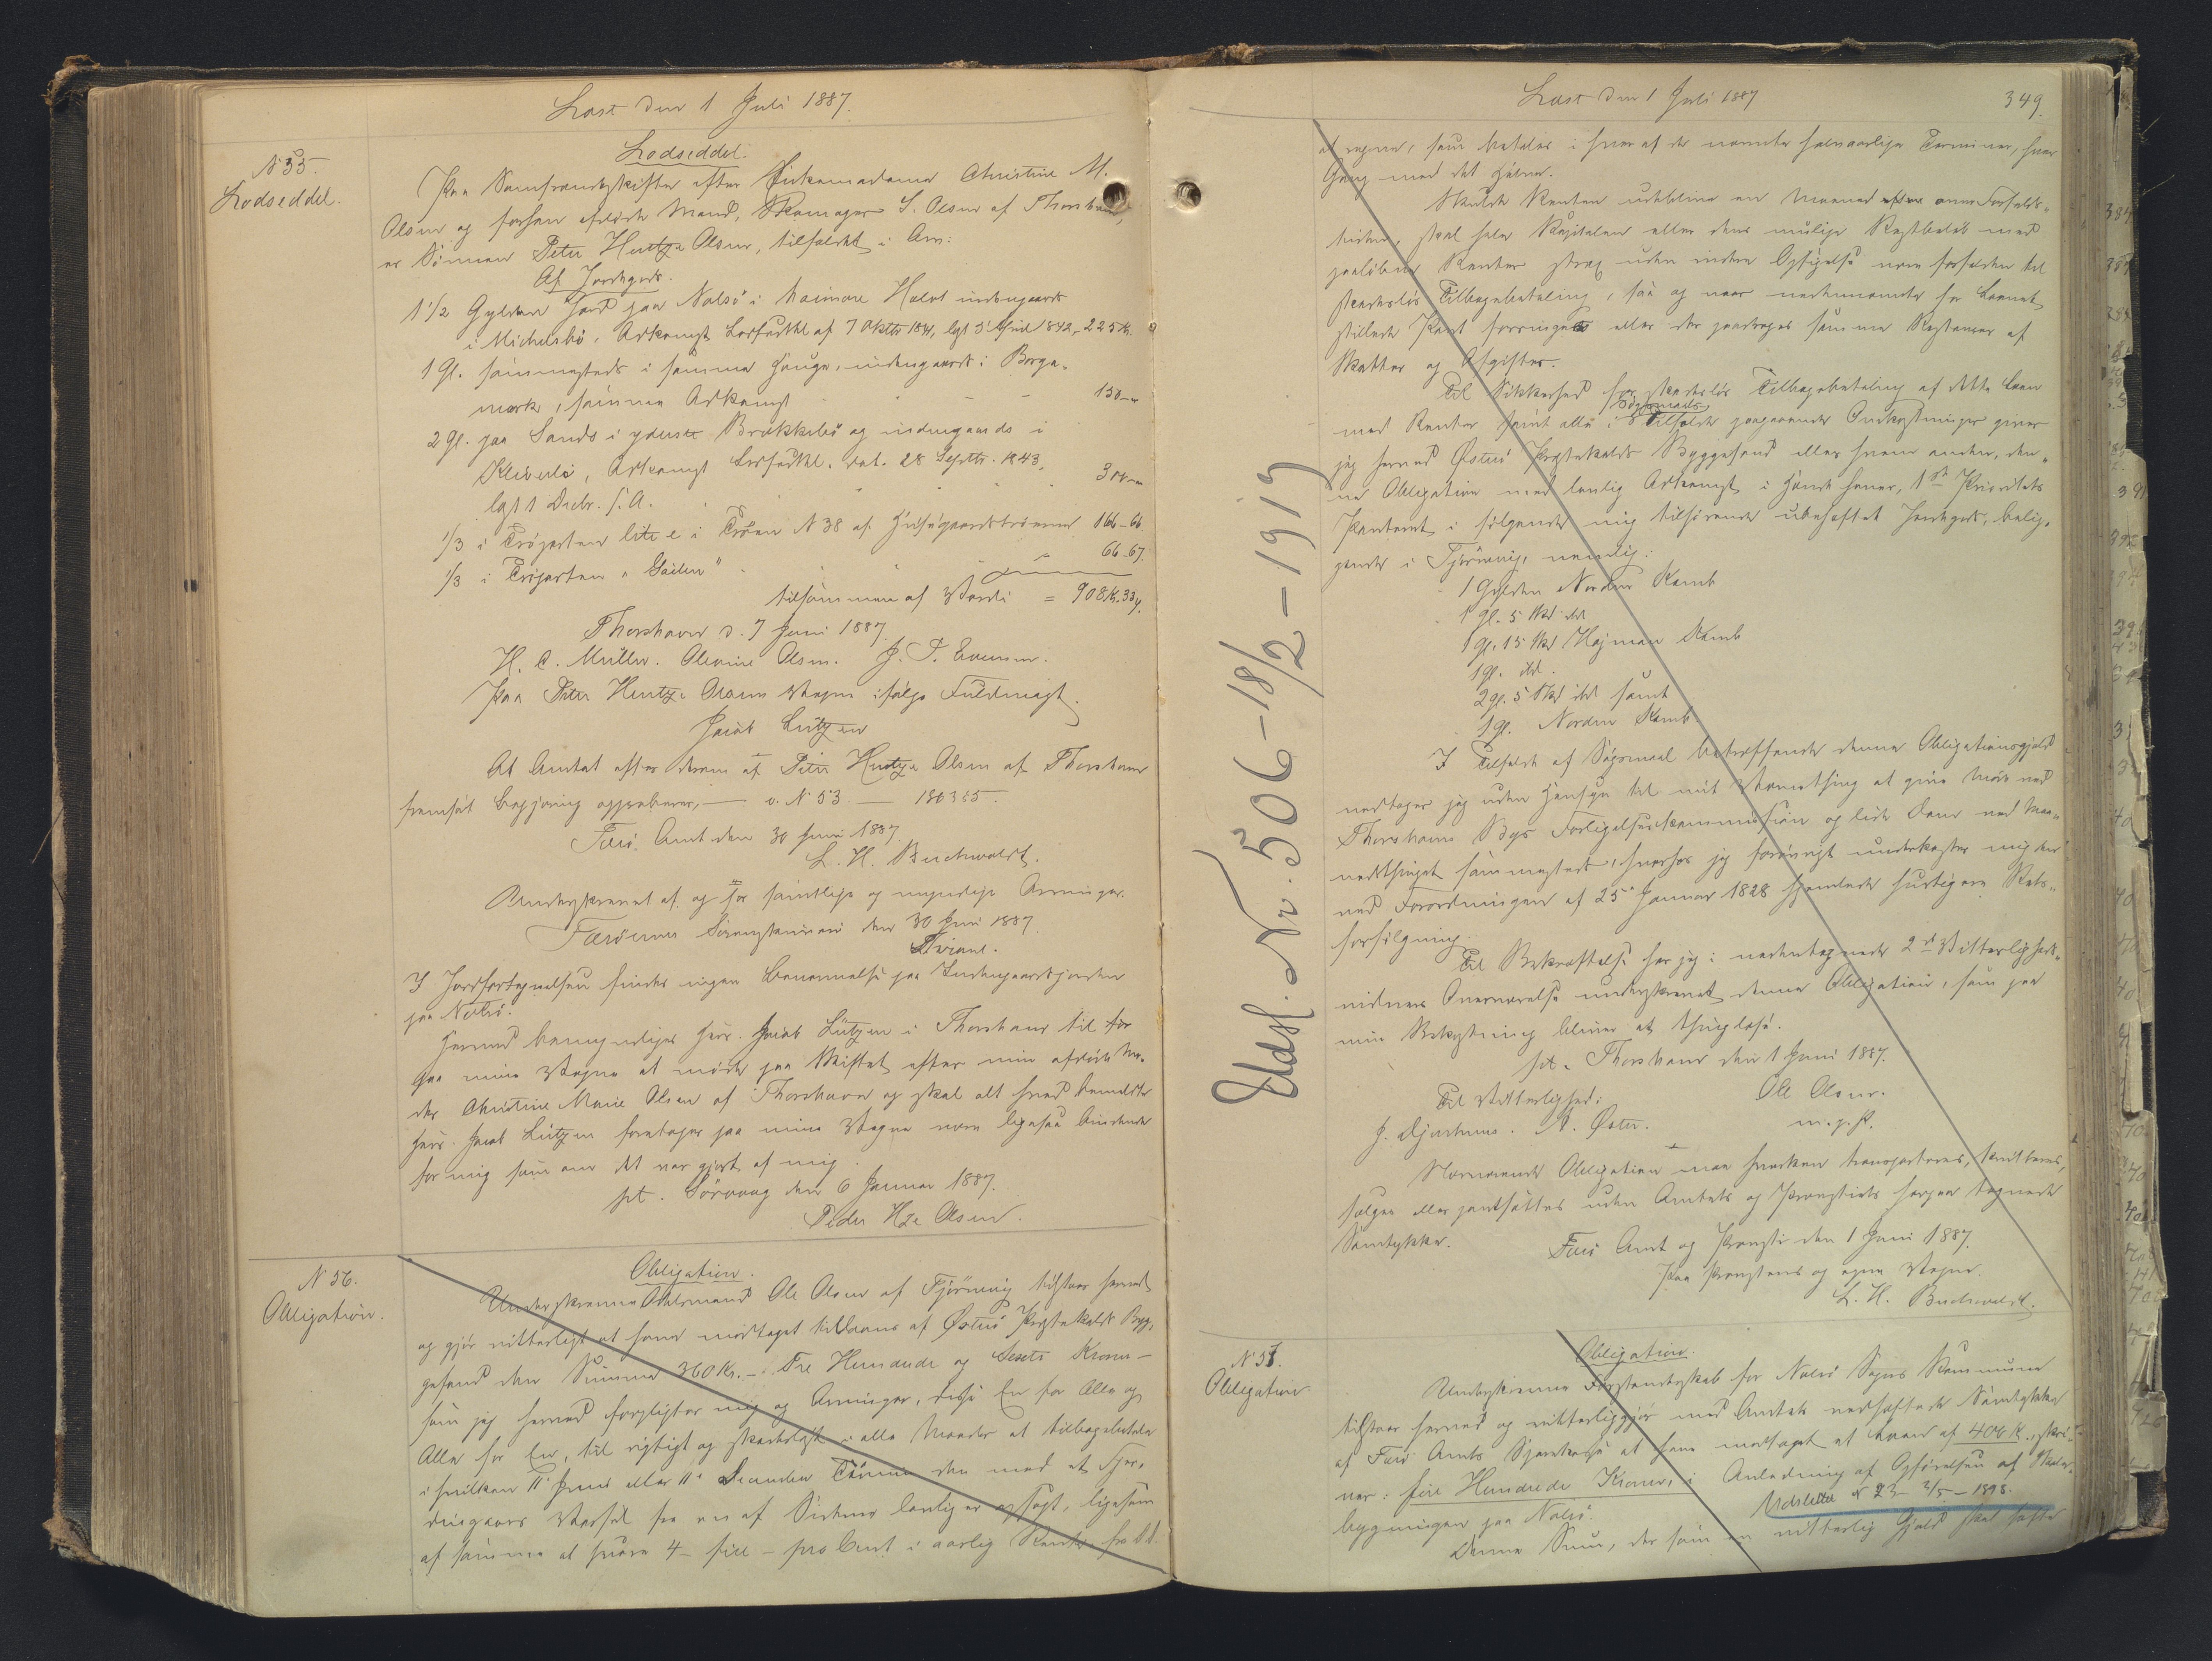 Læst den 1 Juli 1887.
N 55.
Lodseddel.
Lodseddel.
Paa Samfrændeskiftet efter Enkemadame Christine M.
Olsen og forhen afdøde Mand, Skomager S. Olsen af Thorshavn,
er Sønnen Peter Hentze Olsen, tilfaldet i Arv:
Af Jordegods.
1 1/2 Gylden Jord paa Nolsø i Hauge indengaards
i Michelsbø, Adkomst Løsførkl. af 7 Oktbr 1841, lgt 3 1842, 225 Kr.
1 Gl. sammesteds i samme Hauge, indengaards i Borge-
mark, samme Adkomst 150 -
2 Gl. paa Sands i yderste Brækkebø og indengaards i
Adkomst dat. 28 Septbr. 1843,
lgt 1 Decbr. s. A. 300 -
1/3 i Træparten litr e i Træen N 38 af 166-66
1/3 i "Gåilen" 66-67.
tilsammen af Værdi = 908 Kr. 33 Ø.
Thorshavn d. 7 Juni 1887.
H. C. Müller. Olevine Olsen. J. P.
Paa Peter Hentze Olsens Vegne ifølge Fuldmagt.
Jacob Lützen
At Amtet efter derom af Peter Hentze Olsen af Thorshavn
fremsat Begjæring approberer, — v. N 53. —
Færø Amt den 30 Juni 1887
L. H. Buchwaldt.
Underskrevet af og for samtlige og myndige Arvinger.
Færøernes Sorenskriveri den 30 Juni 1887.
I Jordfortegnelsen findes ingen Benævnelse paa Indengaardsjorden
paa Nolsø.
Hermed bemyndiges Herr. Jacob Lützen i Thorshavn til for
paa mine Vegne at møde paa Skiftet efter min afdøde Mo-
der Christine Marie Olsen af Thorshavn og skal alt hvad bemeldte
Herr. Jacob Lützen foretager paa mine Vegne være ligesaa bindende
for mig som om det var gjort af mig.
pt. Sørvaag den 6 Januar 1887.
Peder Hze Olsen.
N 56.
Obligation.
Obligation.
Underskrevne Odelsmand Ole Olsen af Tjørnevig tilstaar herved
og gjør vitterligt at have modtaget tillaans af Østerø Præstekalds Byg-
gefond den Summa 360 Kr. - Tre Hundrede og Sexti Kroner -
som jeg herved forpligter mig og Arvinger, disse En for Alle og
Alle for En, til rigtigt og skadesløst i alle Maader at tilbagebetale
i hvilken 11 Juni eller 11 December Termin den med et Fjer-
dingaars Varsel fra en af Siderne lovlig er opsagt, ligesom
af samme at svare 4 - fire - pro Cent i aarlig Rente fra D. D.
Læst den 1 Juli 1887
349.
at regne, som betales i hver af de nævnte halvaarlige Terminer, hver
Gang med det Halve.
Skulde Renten udeblive en Maaned efter Forfalds-
tiden, skal hele Kapitalen eller dens mulige Restbeløb med
paaløbne Renter strax uden videre Opsigelse være forfalden til
skadesløs Tilbagebetaling, saa og naar nedennævnte for Laanet
stillede Pant forringes eller der paadrages samme Restancer af
Skatter og Afgifter.
Til Sikkerhed for skadesløs Tilbagebetaling af dette Laan
med Renter samt alle i Søgsmaals Tilfælde paagaaende Omkostninger giver
jeg herved Østerø Præstekalds Byggefond eller hvem anden, den-
ne Obligation med lovlig Adkomst i Hænde haver, 1ste Prioritets
Panteret i følgende mig tilhørende ubehæftet Jordegods, belig-
gende i Tjørnevig, nemlig:
1 Gylden Norden Kamb
1 gl. 5 Skd ibd
1 gl. 15 Skd Højman Kamb
1 gl. ibd.
2 gl. 5 Skd ibd samt
1 gl. Norden Kamb.
I Tilfælde af Søgsmaal betræffende denne Obligationsgjæld
vedtager jeg uden Hensyn til mit Værnething at give Møde ved
Thorshavns Byes Forligelseskommission og lide Dom ved Maa-
nedthinget sammesteds, hvorhos jeg forøvrigt underkaster mig den
ved Forordningen af 25 Januar 1828 hjemlede hurtigere Rets-
forfølgning.
Til Bekræftelse har jeg i nedentegnede 2de Vitterligheds-
vidners Overværelse underskrevet denne Obligation, som paa
min Bekostning bliver at thinglæse.
pt. Thorshavn den 1 Juni 1887.
Ole Olsen.
m. p. P.
Til Vitterlighed:
J. Djurhuus. A. Øster.
Nærværende Obligation maa hverken transporteres, kvitteres,
sælges eller pantsættes uden Amtets og Provstiets herpaa tegnede
Samtykke.
Færø Amt og Provsti den 1 Juni 1887.
Paa Provstens og egne Vegne.
L. H. Buchwaldt.
Udsl. Nr. 506 - 18/2 - 1919
N 57.
Obligation
Obligation.
Underskrevne Forstanderskab for Nolsø Sogns Kommune
tilstaar herved og vitterliggjør med Amtets vedhæftede Samtykke
af Færø Amts Sparekasse at have modtaget et Laan af 400 K., skri-
ver: fire Hundrede Kroner, i Anledning af Opførelsen af Skole-
bygningen paa Nolsø.
Udslettet N 23 3/5 - 1898.
Denne Sum, der som en vitterlig Gjæld skal hæfte